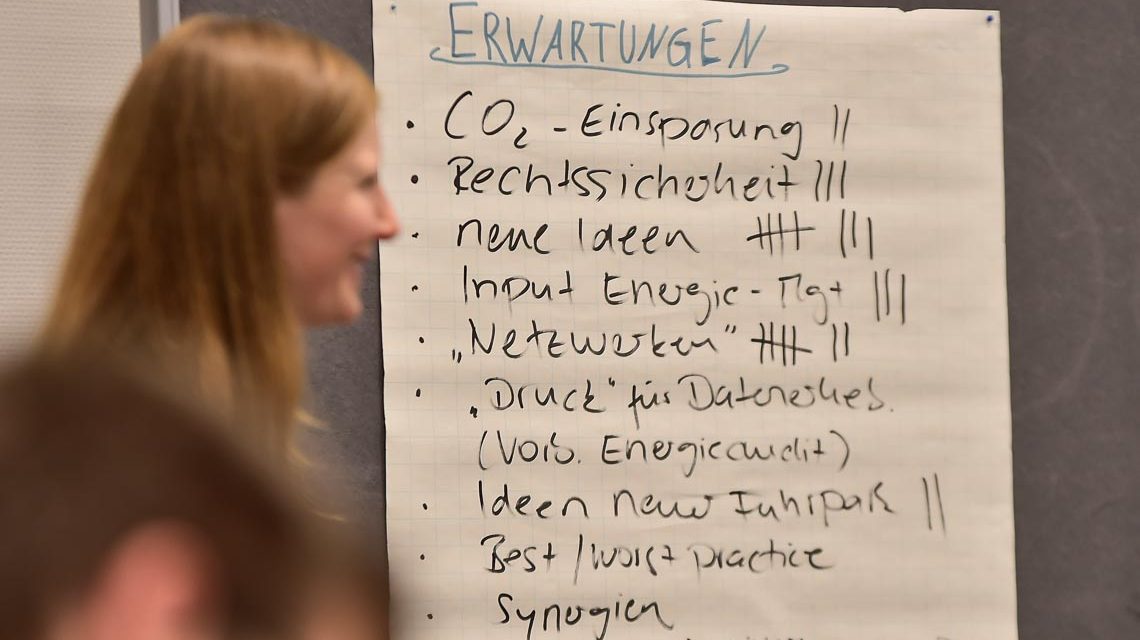 ERWARTUNGEN
· CO₂ - Einsparung ||
· Rechtssicherheit |||
· neue Ideen 卌 |||
· Input Energie - Mgt |||
· „Netzwerken" 卌 ||
· „Druck" für Datenerheb.
(Vorb. Energieaudit)
· Ideen neuer Fuhrpark ||
· Best / worst practice
· Synergien